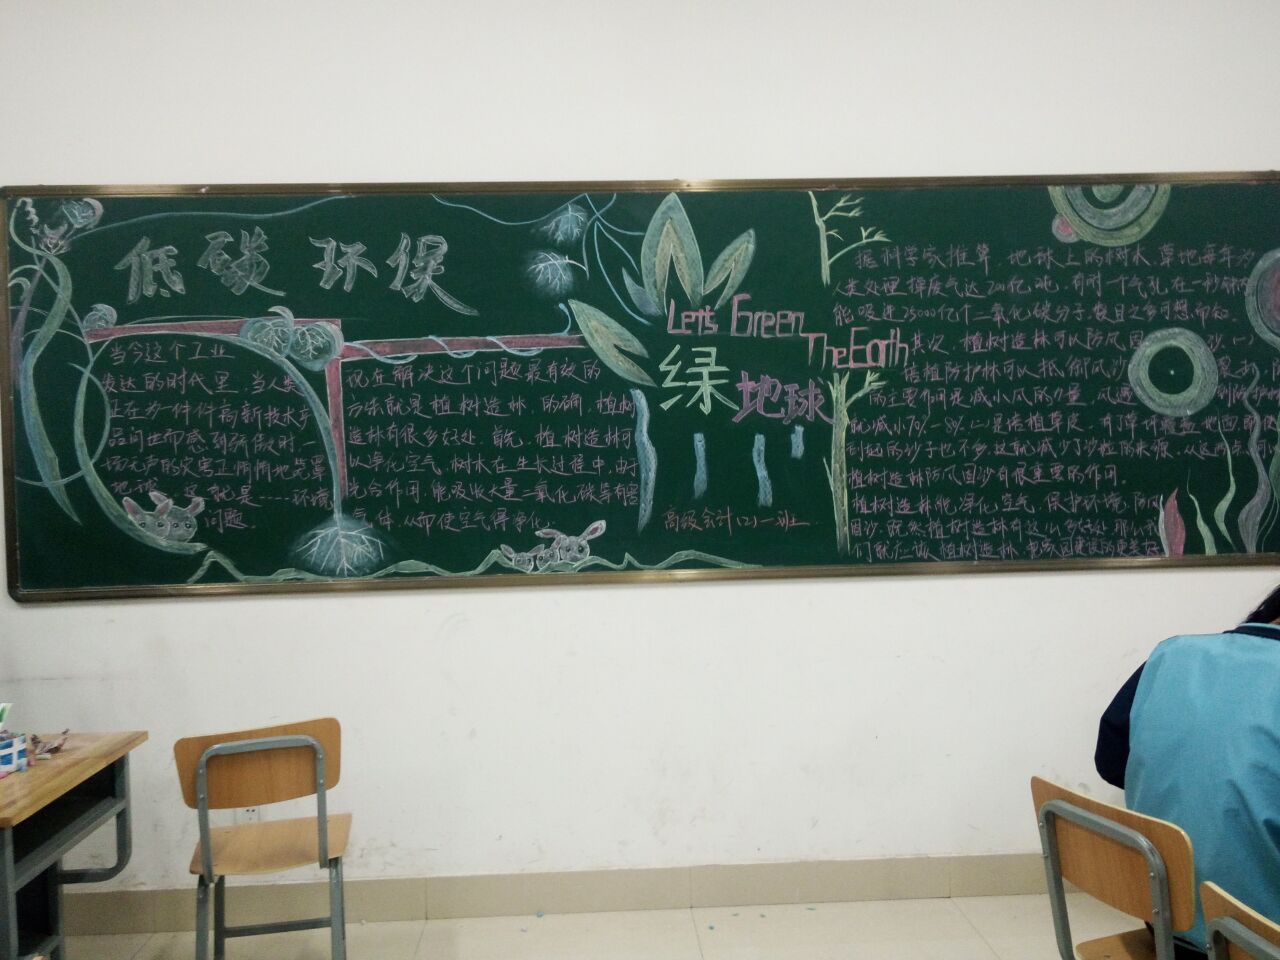 低碳环保
当今这个工业
发达的时代里,当人类
正在为一件件高新技术产
品问世而感到骄傲时,一
场无声的灾害正悄悄地笼罩
地球,这就是----环境
问题。
现在解决这个问题最有效的
方法就是植树造林,的确,植树
造林有很多好处,首先,植树造林可
以净化空气,树木在生长过程中,由于
光合作用,能吸收大量二氧化碳等有害
气体,从而使空气得净化,
Let's Green
The Earth
绿地球
高级会计(2)一班
据科学家推算 地球上的树木 草地每年为
人类处理 废气达
能吸进25000亿个二氧化碳分子,数目之多可想而知。
其次,植树造林可以防风固沙,(一)
植防护林可以抵御风沙
的主要作用是减小风的力量,风遇
减小70%-80%(二)是培植草皮,
的沙子也不多,这就减少了沙粒的来源,从这两点可
植树造林防风固沙有很重要的作用。
植树造林能净化空气,保护环境,防风
固沙,既然植树造林有这么多好处,那么
们就 植树造林